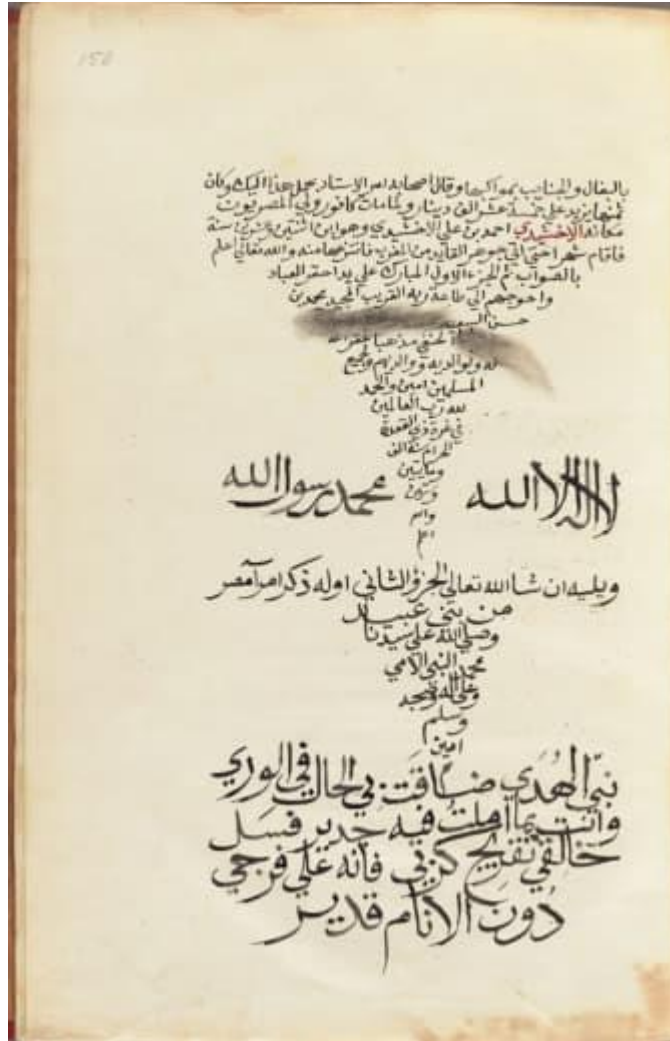 150
بالبغال والجنايب بمراكبها وقال أصحابه امر الاستاد بحمل هذا اليك وكان
ثمنها يزيد على خمسة عشر الف دينار ولما مات كافور ولي المصريون
مكانه الاخشيدي احمد بن علي الاخشيدي وهو ابن اثنتين سنة
فاقام شهرا حتى اتى جوهر القايد من المغرب فانتزعها منه والله تعالى اعلم
بالصواب تم الجزء الاول المبارك على يد احقر العباد
واحوجهم الى ربه القريب المجيد محمد بن
حسن
الحنفي مذهبا غفر الله
له ولوالديه ولجميع
المسلمين امين والحمد
لله رب العالمين
في غرة ذي القعدة
الحرام سنة الف
ومايتين
لا اله الا الله محمد رسول الله
ويليه ان شا الله تعالى الجزؤ الثاني اوله ذكر امرآ مصر
من بني عبيد
وصلى الله على سيدنا
محمد النبي الامي
وعلى اله وصحبه
وسلم
امين
نبيّ الهُدي ضاقَت بي الحال في الوري
وانت بما املتُ فيه جدير فسَل
خالقي تفريج كربي فانه على فرجي
دُونَ الانام قدير